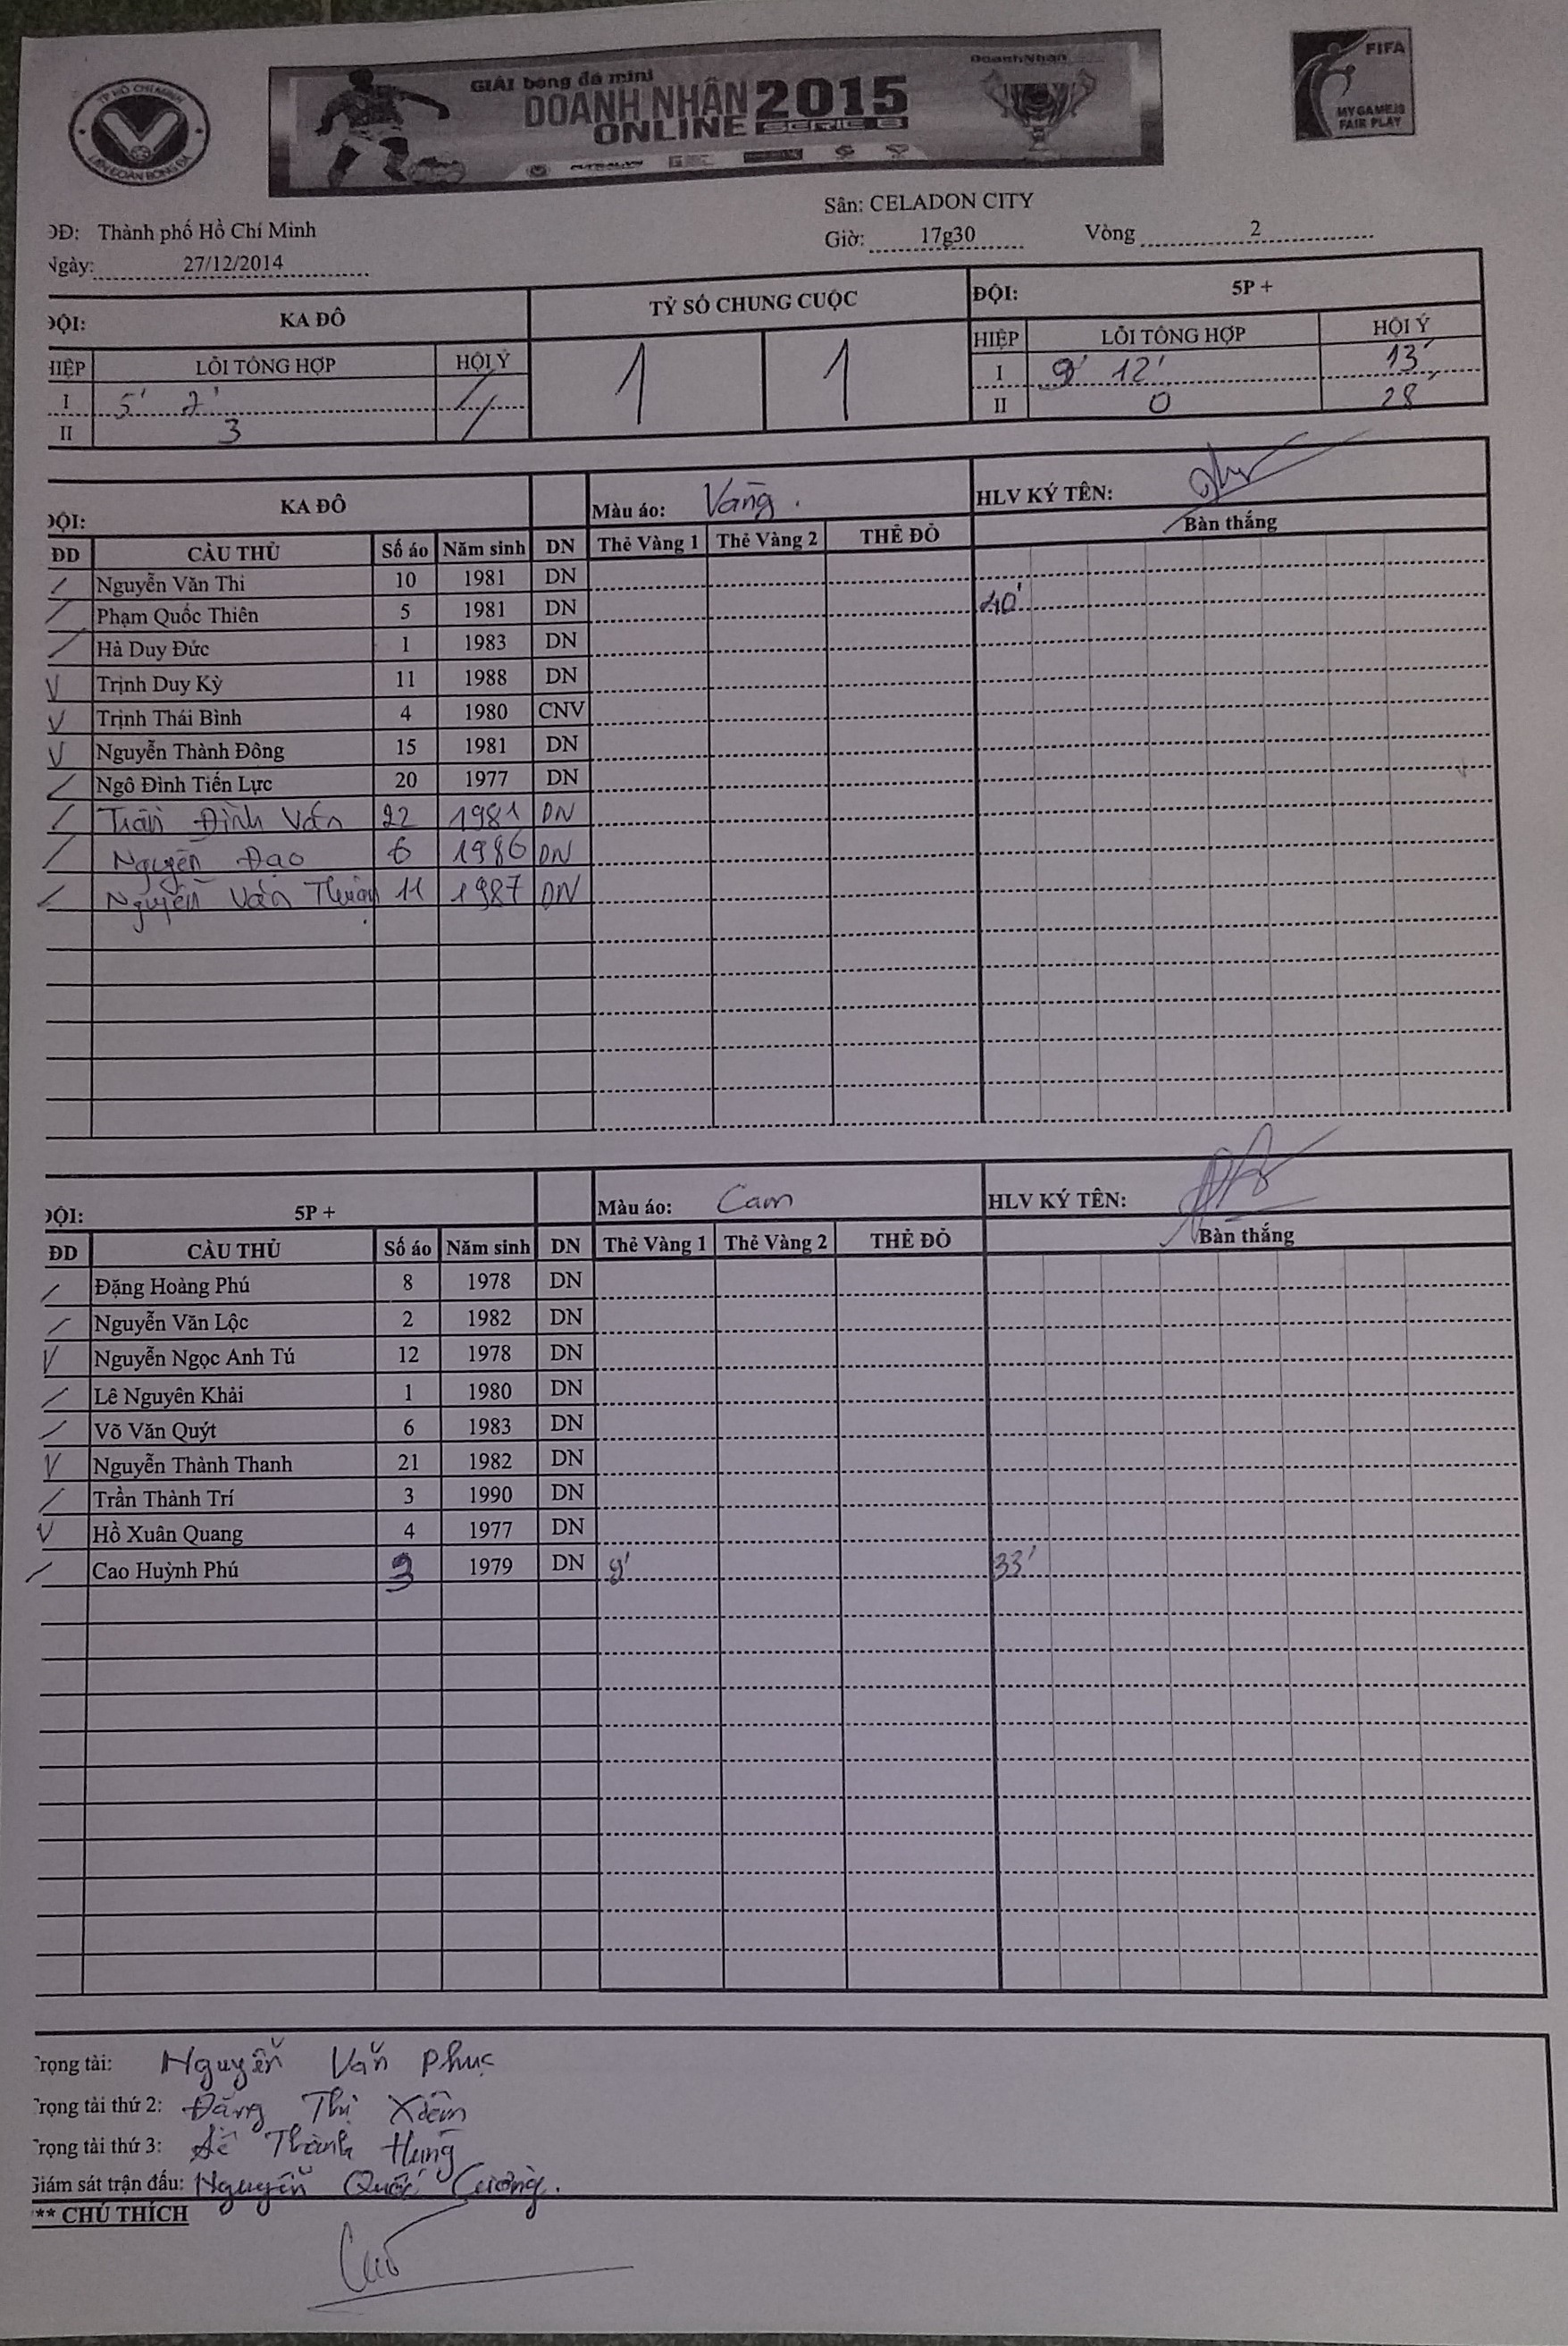 TP HỒ CHÍ MINH
LIÊN ĐOÀN BÓNG ĐÁ
GIẢI bóng đá mini
DOANH NHÂN 2015
ONLINE SERIE B
DoanhNhan
FIFA
MY GAME IS
FAIR PLAY
Sân: CELADON CITY
ĐĐ: Thành phố Hồ Chí Minh
Giờ: 17g30 Vòng 2
Ngày: 27/12/2014
ĐỘI: KA ĐÔ TỶ SỐ CHUNG CUỘC ĐỘI: 5P +
HIỆP LỖI TỔNG HỢP HỘI Ý 1 1 HIỆP LỖI TỔNG HỢP HỘI Ý
I 5' 7' / I 9' 12' 13'
II 3 / II 0 28'
ĐỘI: KA ĐÔ Màu áo: Vàng. HLV KÝ TÊN:
ĐD CẦU THỦ Số áo Năm sinh DN Thẻ Vàng 1 Thẻ Vàng 2 THẺ ĐỎ Bàn thắng
/ Nguyễn Văn Thi 10 1981 DN
/ Phạm Quốc Thiên 5 1981 DN 40'
/ Hà Duy Đức 1 1983 DN
V Trịnh Duy Kỳ 11 1988 DN
V Trịnh Thái Bình 4 1980 CNV
V Nguyễn Thành Đông 15 1981 DN
/ Ngô Đình Tiến Lực 20 1977 DN
/ Trần Đình Văn 22 1981 DN
/ Nguyễn Đạo 6 1986 DN
/ Nguyễn Văn Thuận 11 1987 DN
ĐỘI: 5P + Màu áo: Cam HLV KÝ TÊN:
ĐD CẦU THỦ Số áo Năm sinh DN Thẻ Vàng 1 Thẻ Vàng 2 THẺ ĐỎ Bàn thắng
/ Đặng Hoàng Phú 8 1978 DN
/ Nguyễn Văn Lộc 2 1982 DN
V Nguyễn Ngọc Anh Tú 12 1978 DN
/ Lê Nguyên Khải 1 1980 DN
/ Võ Văn Quýt 6 1983 DN
V Nguyễn Thành Thanh 21 1982 DN
/ Trần Thành Trí 3 1990 DN
V Hồ Xuân Quang 4 1977 DN
/ Cao Huỳnh Phú 1979 DN 9' 33'
Trọng tài: Nguyễn Văn Phúc
Trọng tài thứ 2: Đặng Thị Xiêm
Trọng tài thứ 3: Lê Thành Hưng
Giám sát trận đấu: Nguyễn Quốc Cường.
** CHÚ THÍCH